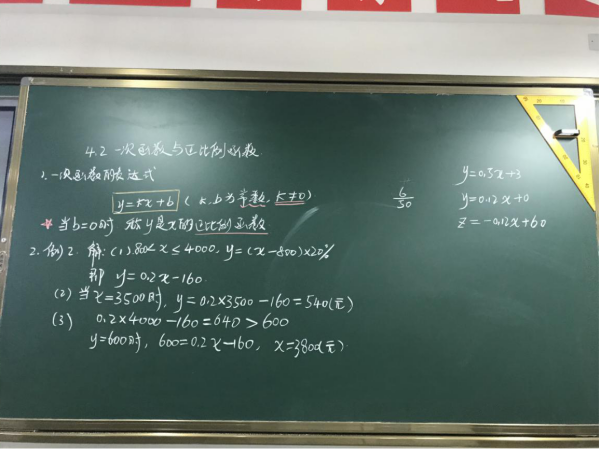 4.2 一次函数与正比例函数
1. 一次函数的表达式
y=kx+b (k,b为常数,k≠0)
* 当b=0时 称y是x的正比例函数
2. 例2. 解:(1)800<x≤4000, y=(x-800)×20%
即 y=0.2x-160.
(2) 当x=3500时, y=0.2×3500-160=540(元)
(3) 0.2×4000-160=640>600
y=600时, 600=0.2x-160, x=3800(元)
6/50
y=0.5x+3
y=0.12x+0
z=-0.12x+60